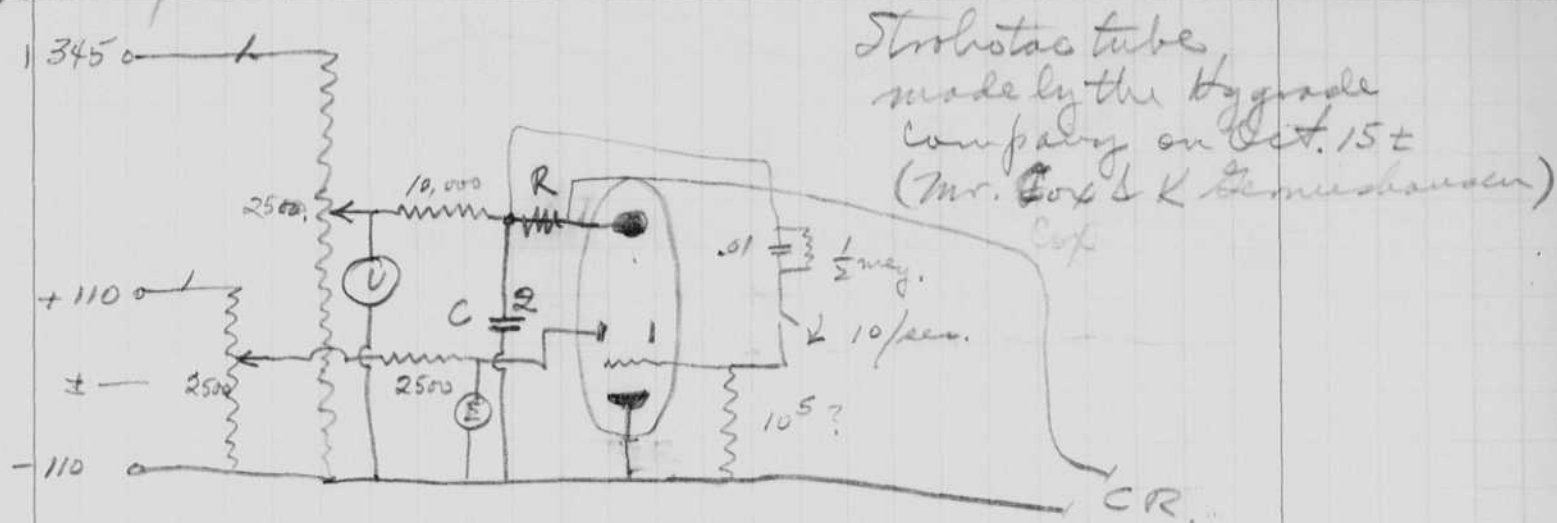 Strobotac tube,
made by the Hygrade
company on Oct. 15 ±
(Mr. Cox & K Germeshausen)
Cox
345
10,000
R
2500
V
.01
1/2 meg.
+ 110
C
2
10/sec.
± —
2500
2500
E
10⁵ ?
- 110
C R.